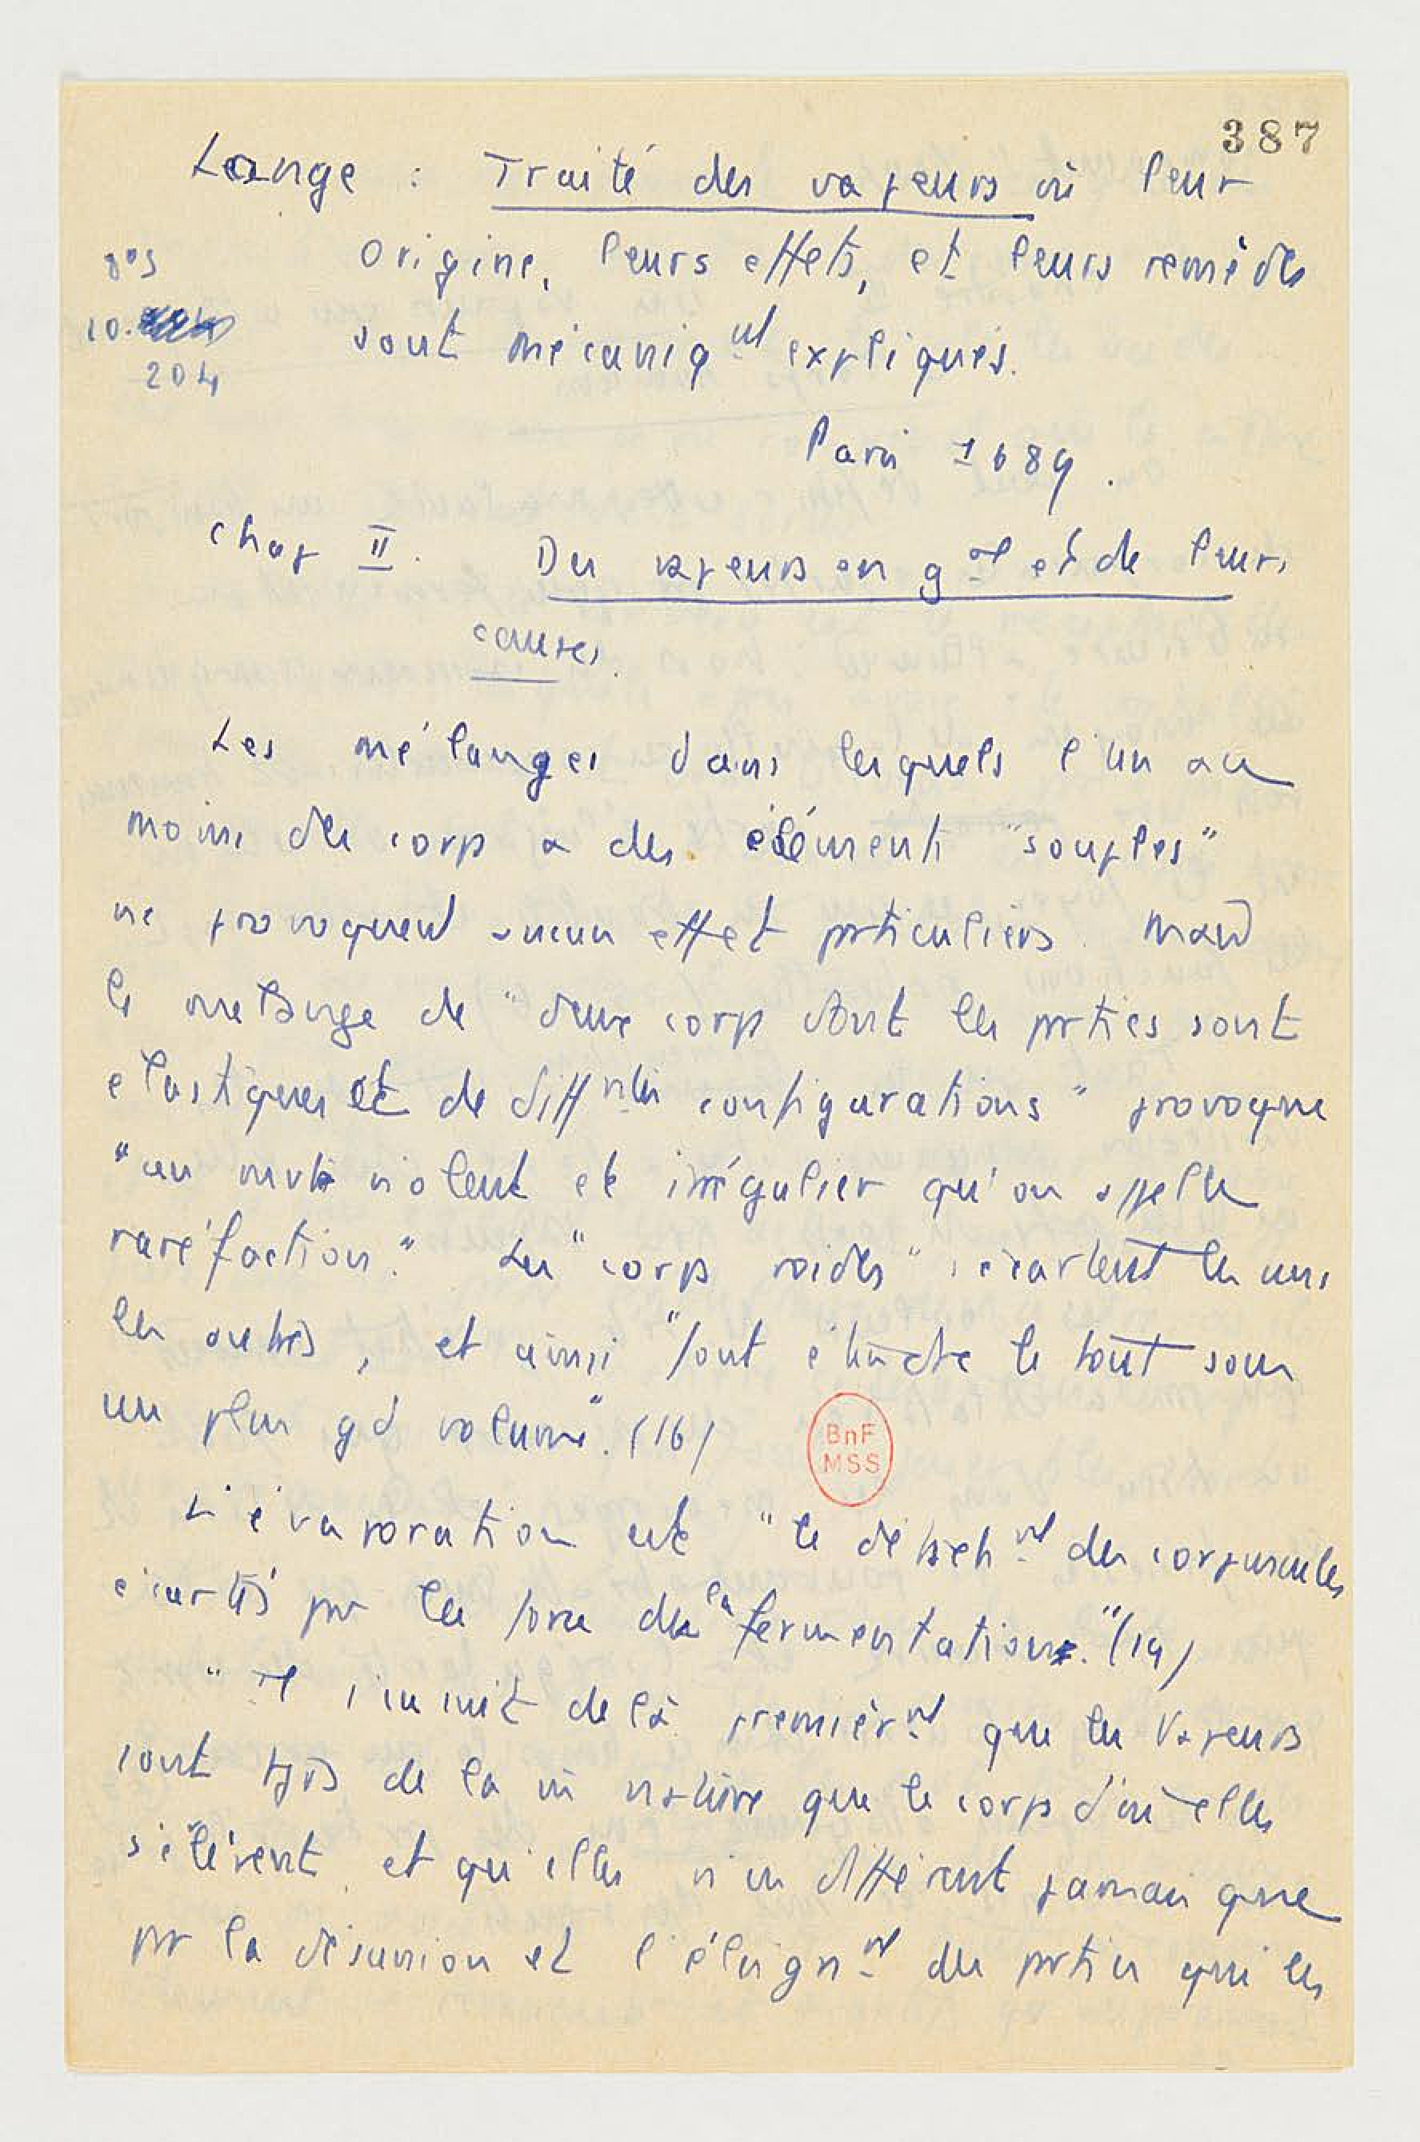 387
Lange : Traité des vapeurs où leur
8° S
origine, leurs effets, et leurs remèdes
10.
sont mécaniqnt expliqués.
204
Paris 1689.
Chap II. Des vapeurs en gal et de leurs
causes.
Les mélanges dans lesquels l'un au
moins des corps a des éléments "souples"
ne provoquent aucun effet particuliers. Mais
le mélange de "deux corps dont les prties sont
élastiques et de diffntes configurations" provoque
"un mvt violent et irrégulier qu'on appelle
raréfaction." Les "corps roides" s'écartent les uns
les autres, et ainsi "font étendre le tout sous
un plus gd volume". (16)
L'évaporation est "le détachnt des corpuscules
écartés pr la force de la fermentation." (19)
"Il s'en suit de là premièrnt que les Vapeurs
sont tjrs de la m nature que le corps d'où elles
s'élèvent, et qu'elles n'en diffèrent jamais que
pr la désunion et l'éloignnt des prties qui les
BnF
MSS